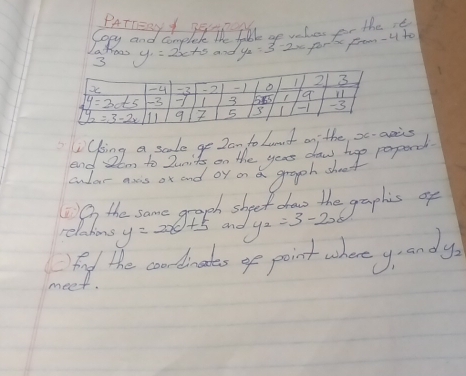 PATTERN & RELATION
Copy and complete the table of values for the re
lations y₁ = 2x+5 and y₂ = 3-2x for x from -4 to
3
x -4 -3 -2 -1 0 1 2 3
y = 2x+5 -3 -1 1 3 9 11
y₂ = 3-2x 11 9 7 5 3 1 -1 -3
(i) Using a scale of 2cm to 1unit on the x-axis
and 2cm to 2units on the draw two
axis ox and oy on a graph sheet
(ii) On the same graph sheet draw the graphs of
relations y = 2x+5 and y₂ = 3-2x
find the coordinates of point where y₁ and y₂
meet.